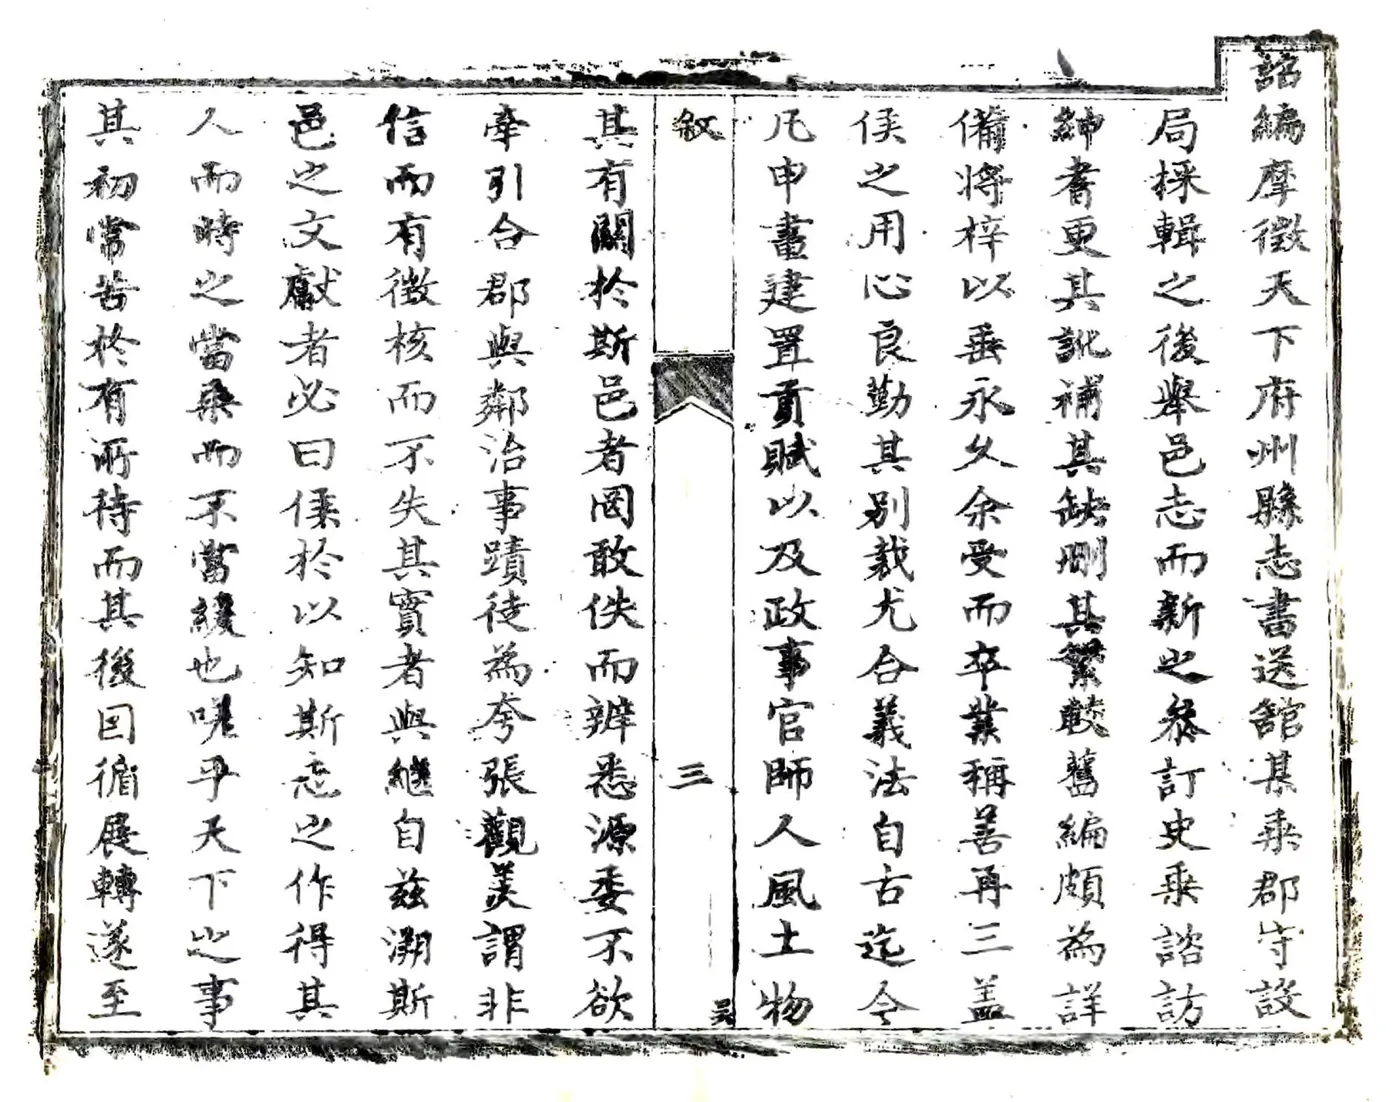 詔編摩徵天下府州縣志書送舘某乘郡守設
局採輯之後舉邑志而新之叅訂史乘諮訪
紳耆更其訛補其缺刪其繁較舊編頗為詳
備將梓以垂永久余受而卒業稱善再三蓋
侯之用心良勤其別裁尤合義法自古迄今
凡申畫建置貢賦以及政事官師人風土物
敘
三
吴
其有關於斯邑者罔敢佚而辨悉源委不欲
牽引合郡與鄰治事蹟徒為夸張觀美謂非
信而有徵核而不失其實者與繼自兹溯斯
邑之文獻者必曰侯於以知斯志之作得其
人而時之當乘而不當緩也嗟乎天下之事
其初常苦於有所待而其後因循展轉遂至